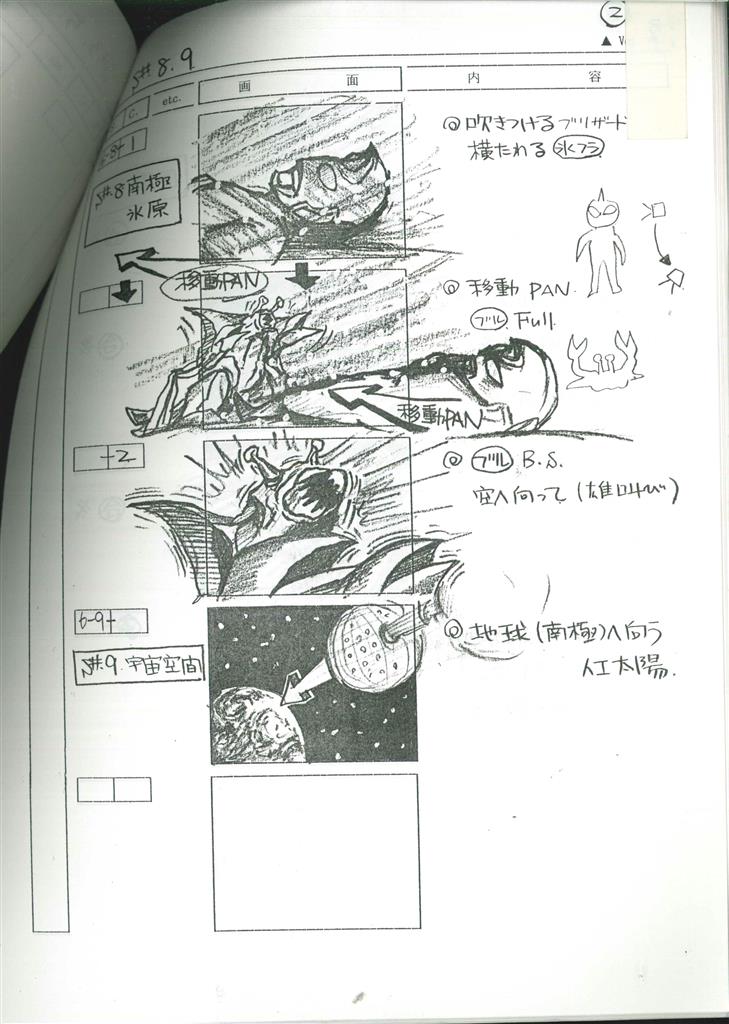 ②
▲ V
S#. 8. 9
C. etc. 画面 内容
6-8+ 1
S#.8 南極
氷原
◎ 吹きつけるブリザード
横たわる
移動PAN
◎ 移動 PAN.
ブル Full.
移動PAN
+2
◎ ブル B.S.
空へ向って (雄叫び)
6-9+
S#.9. 宇宙空間
◎ 地球(南極)へ向う
人工太陽.